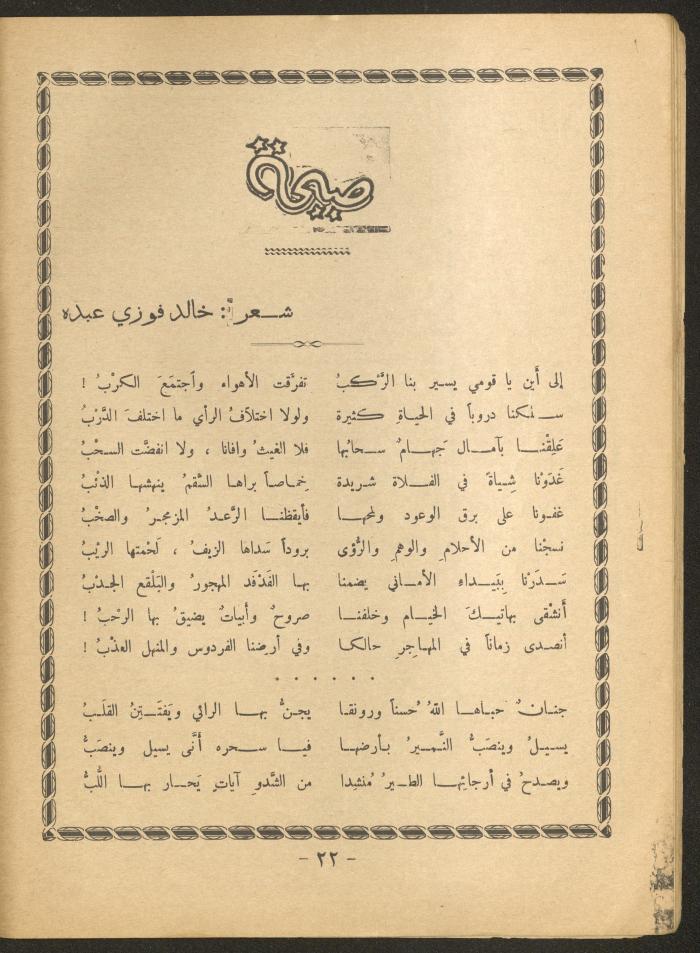 صيحة
شعر : خالد فوزي عبده
إلى أَين يا قومي يسير بنا الرَّكبُ تفرَّقت الأهواء وأجتمَعَ الكربُ !
سلكنا دروباً في الحياةِ كثيرة ولولا اختلافُ الرأي ما اختلفَ الدَّربُ
عَلِقْنا بآمال جَهامٌ سحابُها فلا الغيثُ وافانا ، ولا انفضَّت السحْبُ
غَدَوْنا شِياهً في الفلاة شريدة خِماصاً براها السُّقمُ ينهشها الذئْبُ
غفونا على برق الوعود ولمحها فأيقظنا الرَّعدُ المزمجرُ والصخْبُ
نسجْنا من الأحلامِ والوهمِ والرُّؤى بروداً سَداها الزيفُ ، لَحْمتها الريْبُ
سَدَرْنا بِبَيداءِ الأماني يضمنا بها الفَدْفَد المهجورُ والبَلْقع الجدْبُ
أَنشْقى بهاتيكَ الخيام وخلفنا صروحٌ وأبياتٌ يضيقُ بها الرحْبُ !
أنصدى زماناً في المهاجرِ حالكا وفي أرضِنا الفردوس والمنهل العذْبُ !
. . . . . .
جنانٌ حباها اللّهُ حُسناً ورونقا يجنُّ بها الرائي ويَفتتِنُ القلَبُ
يسيلُ وينصَبُّ النَّميرُ بأرضها فيا سحره أَنَّى يسيل وينصَبُّ
ويصدحُ في أرجائِها الطيرُ مُنشِدا من الشَّدوِ آياتٍ يَحار بها اللُّبُّ
- ٢٢ -